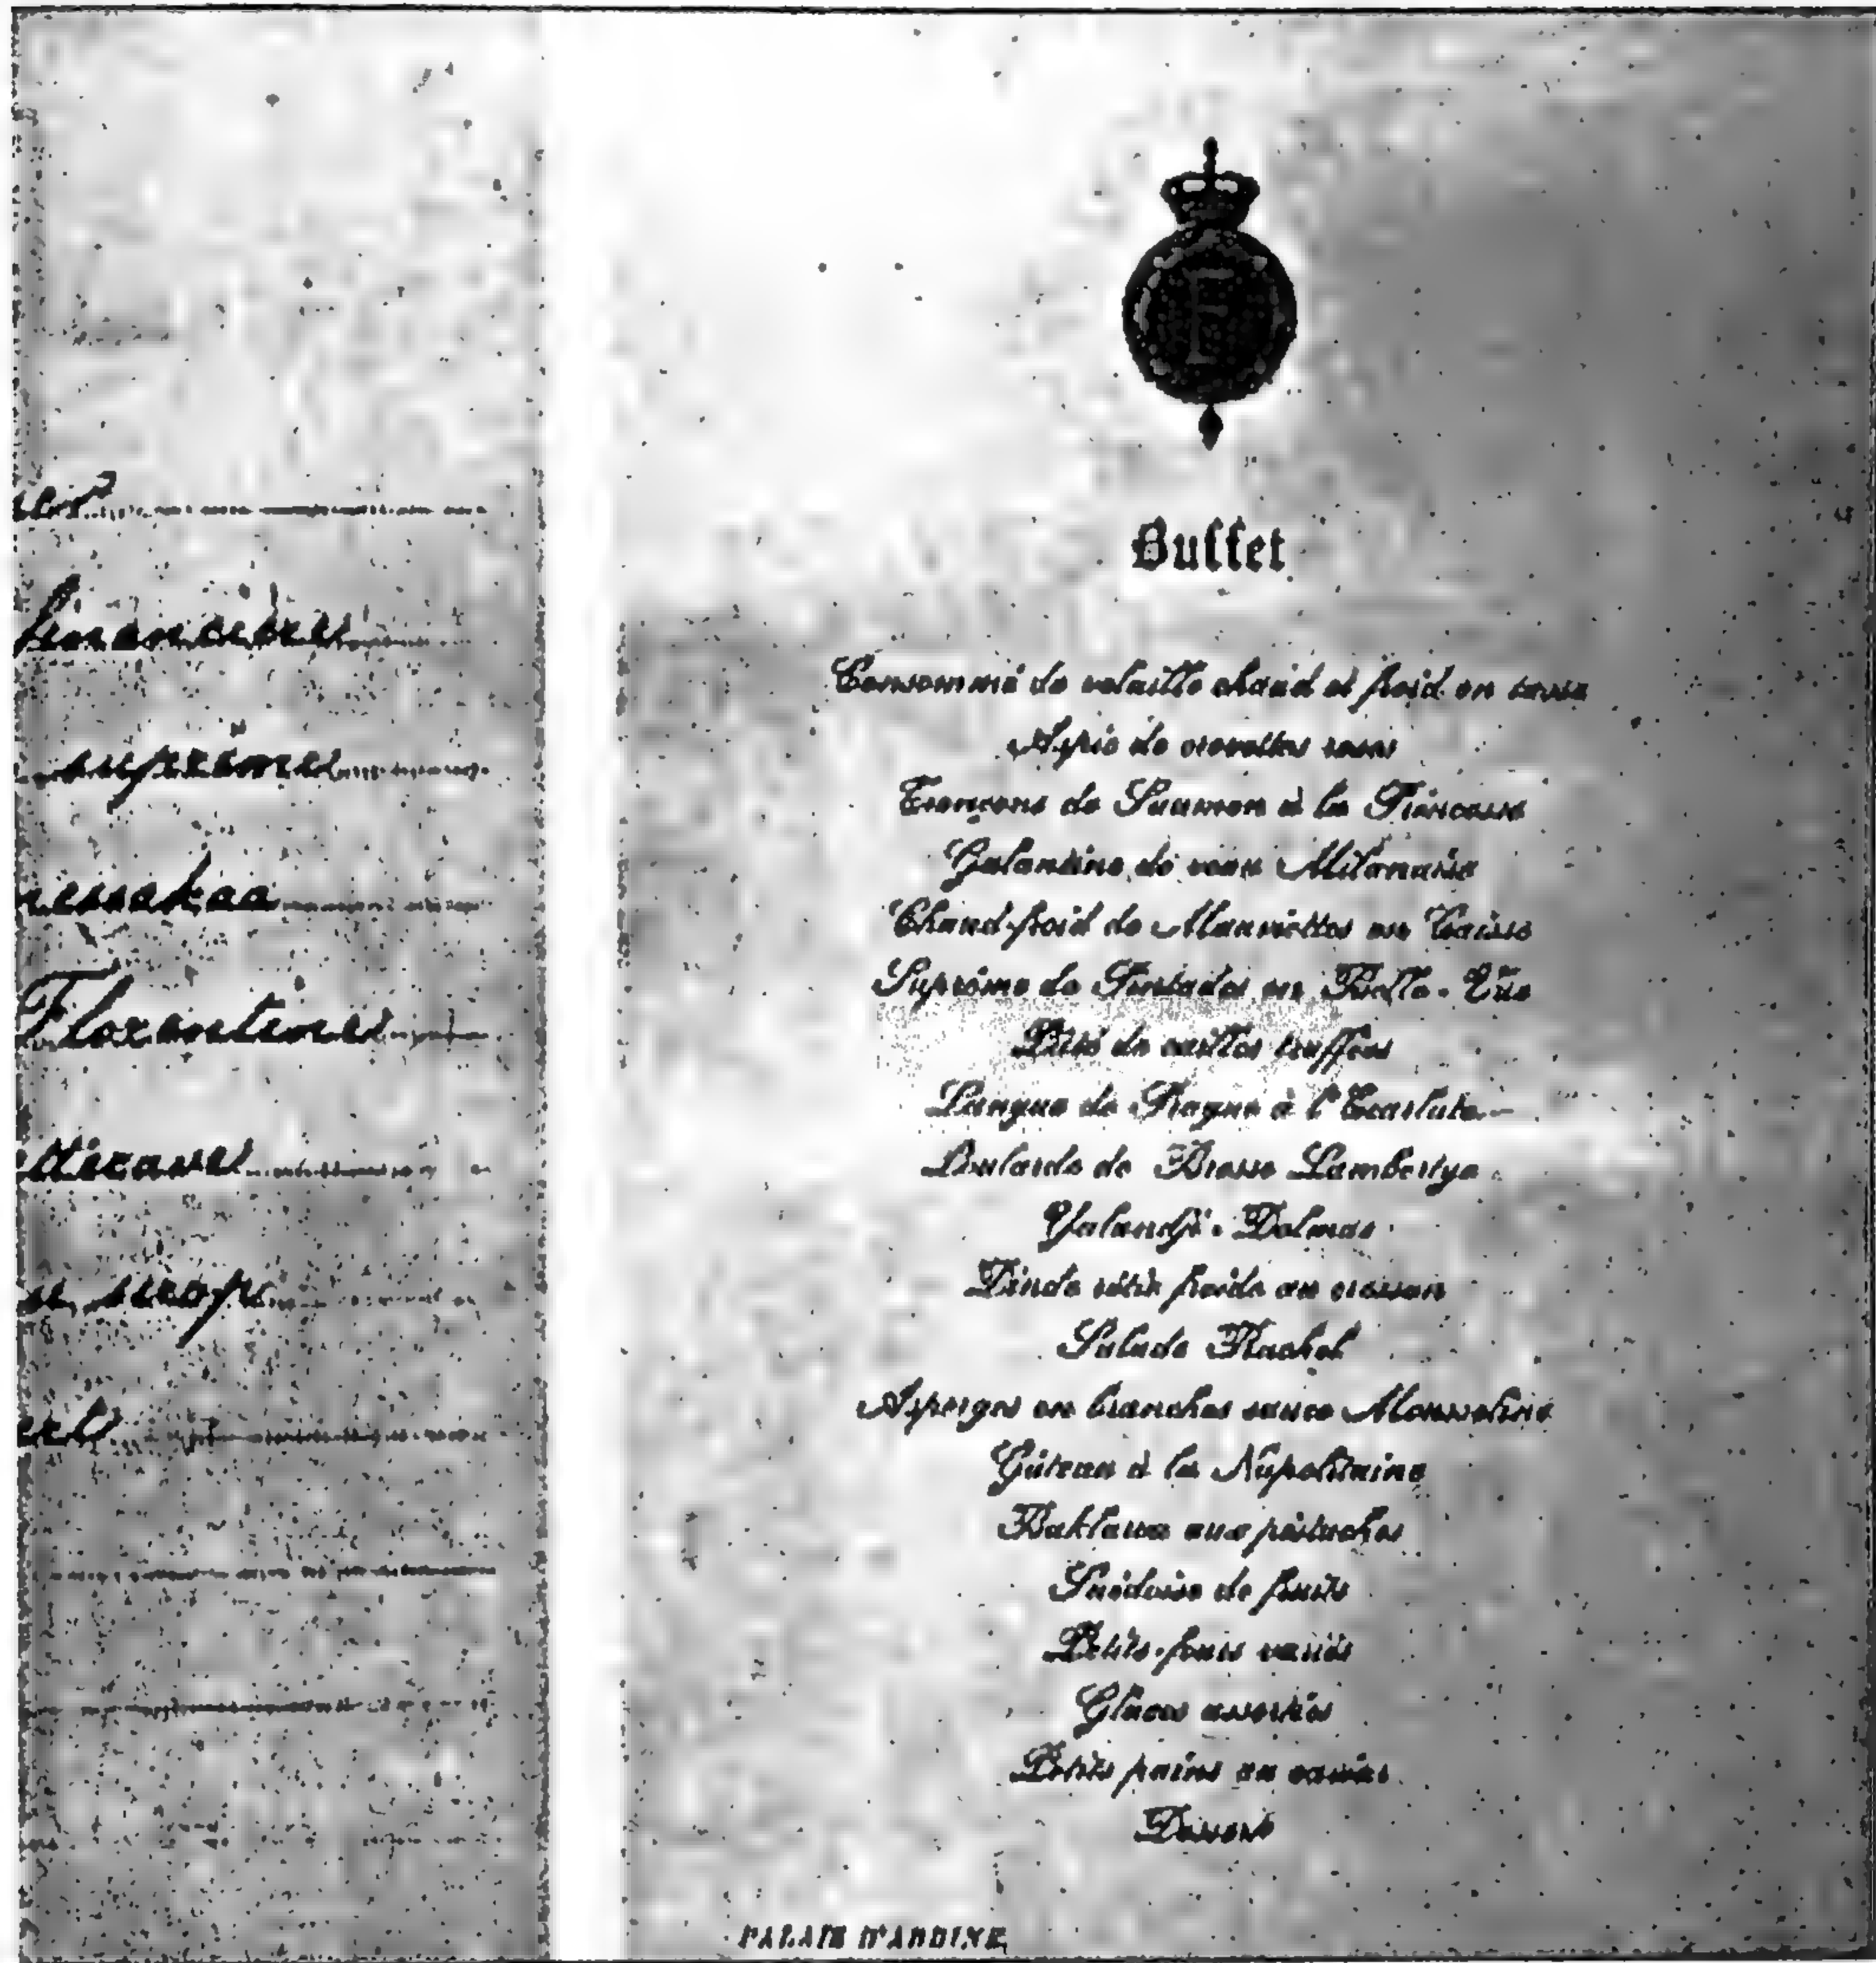 financière
suprême
Florentine
Buffet
Consommé de volaille chaud et froid en tasse
Aspic de crevettes roses
Tronçons de Saumon à la
Galantine de veau Milanaise
Chaud-froid de Mauviettes en Caisse
Suprême de Pintades en Belle-Vue
Pâté de cailles truffées
Langue de à l'Ecarlate
Poularde de Bresse Lambertye
Yalandji-Dolmas
Dinde rôtie froide au cresson
Salade Rachel
Asperges en branches sauce Mousseline
Gâteau à la Napolitaine
Baklawa aux pistaches
Suédoise de fruits
Petits-fours variés
Glaces assorties
Petits pains au caviar
Dessert
PALAIS D'ABDINE